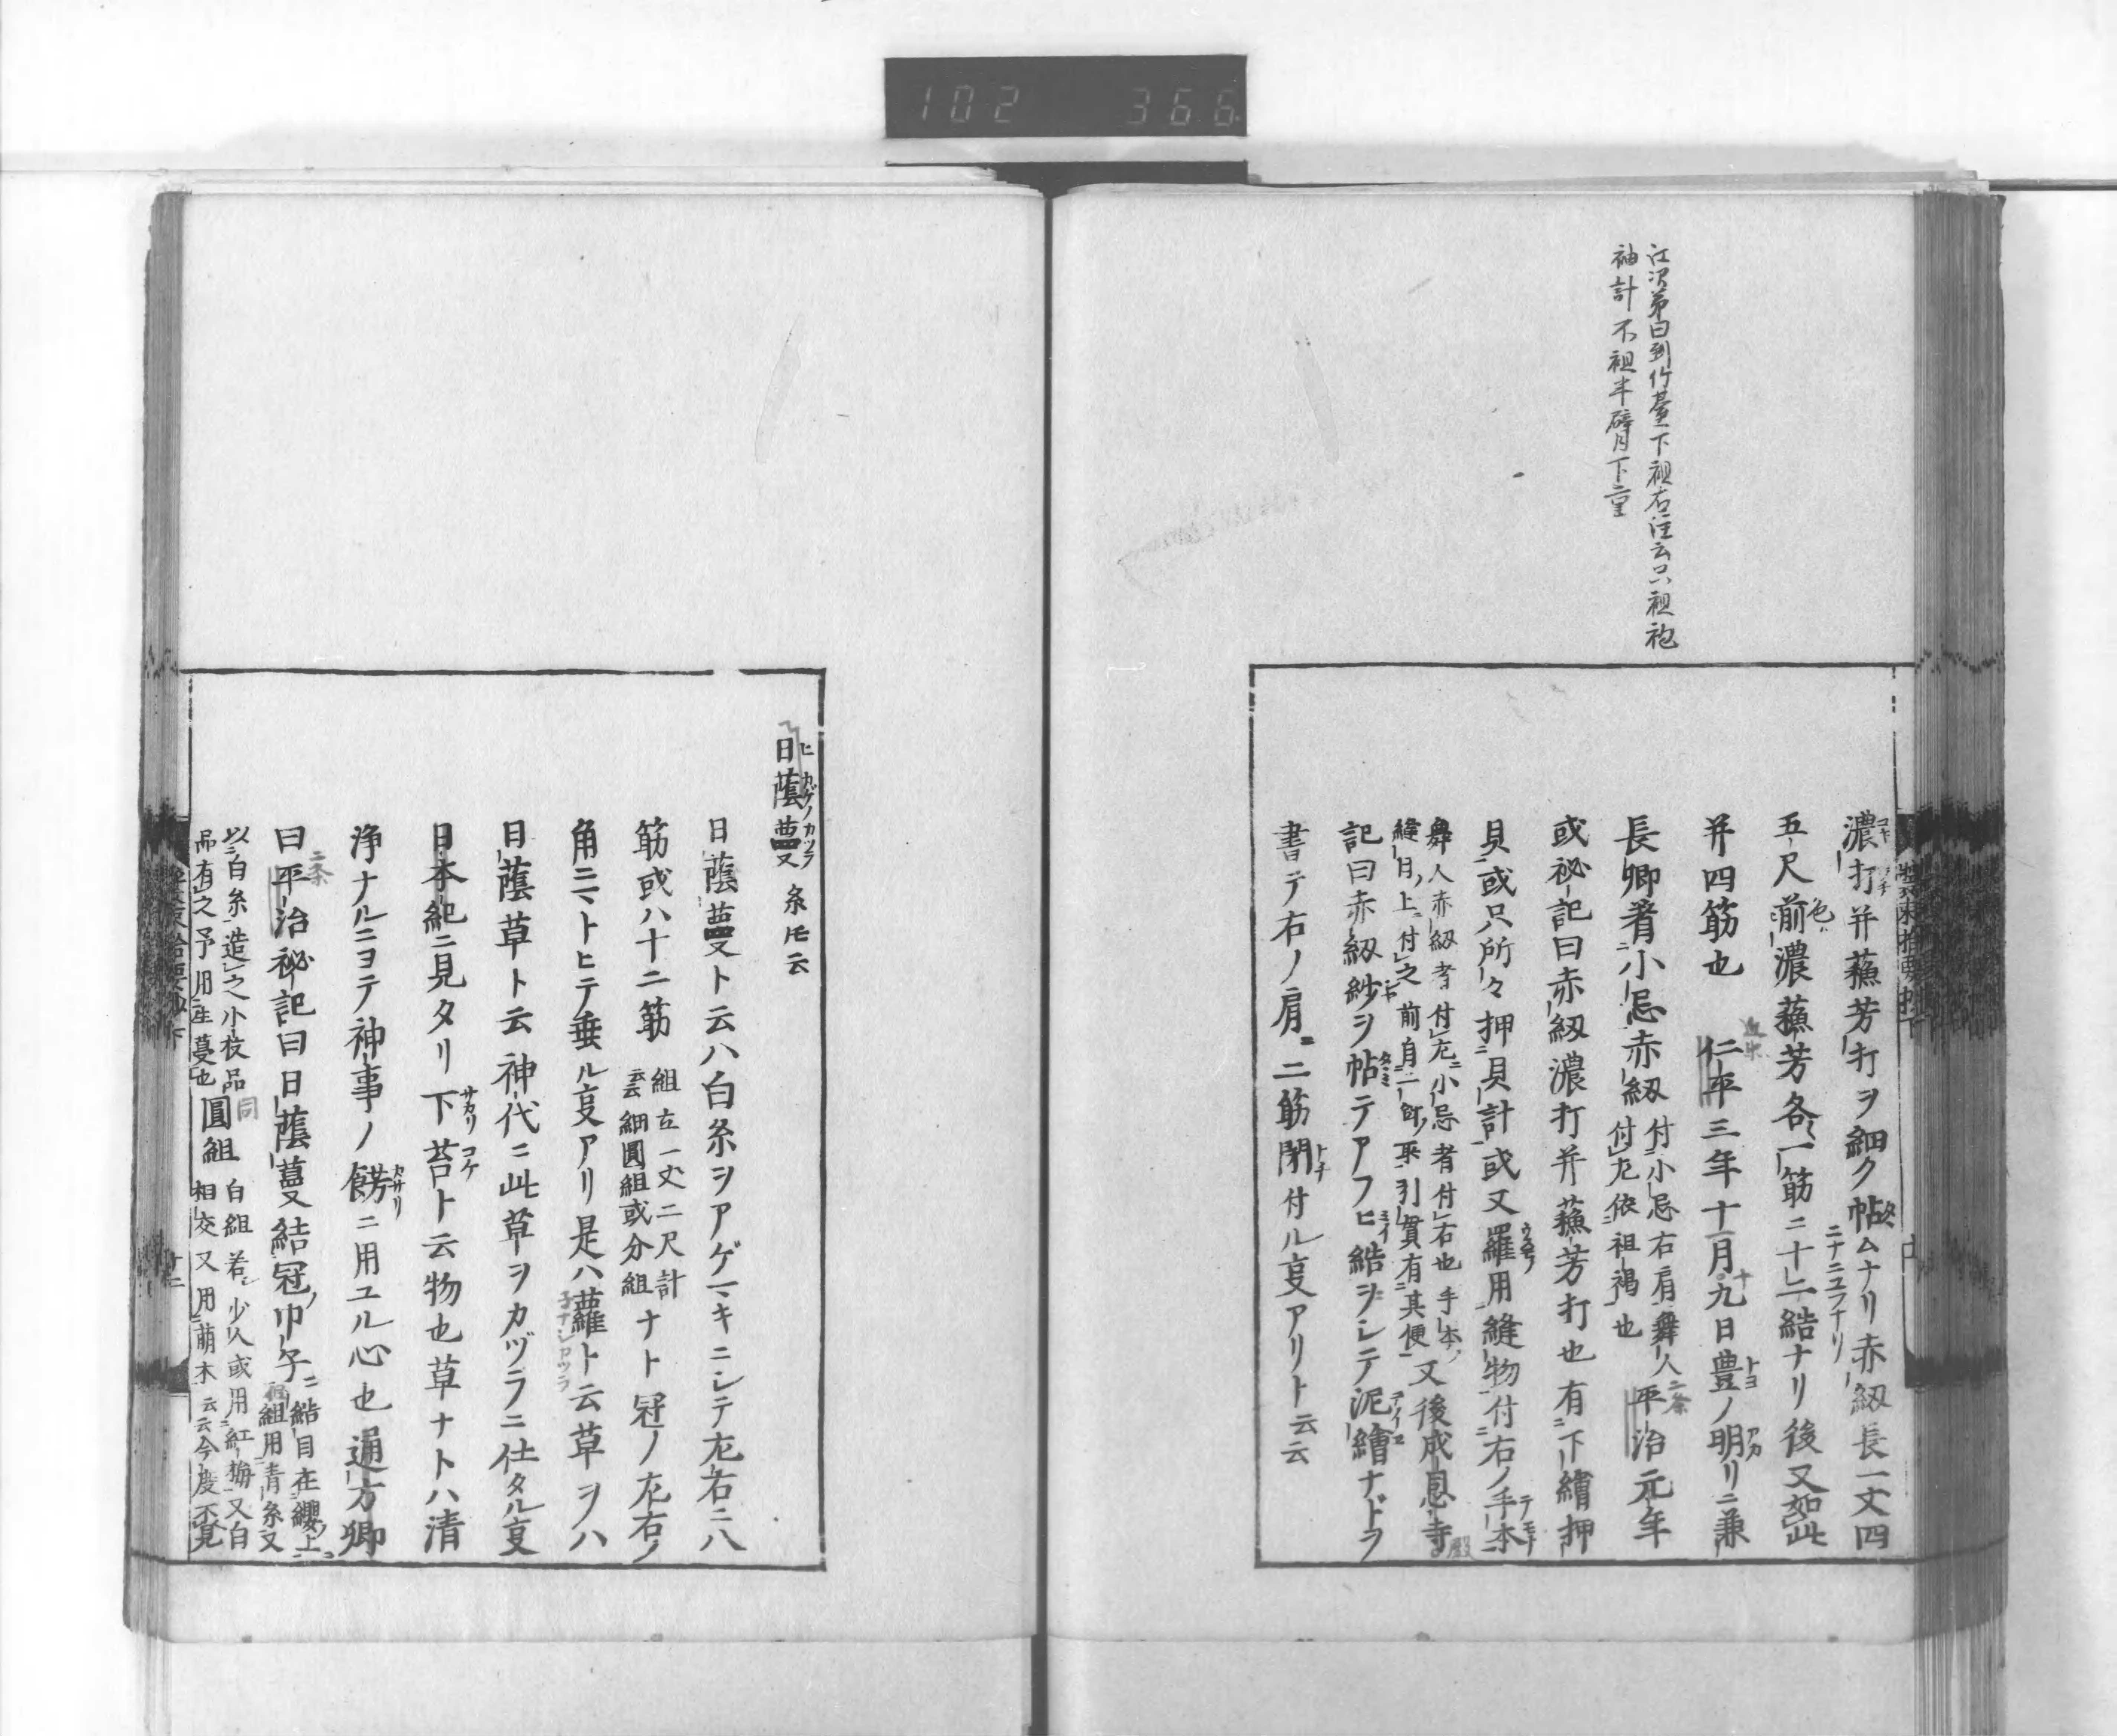 102 366
江次第曰到竹臺下袒右注云只袒袍
袖計不袒半臂下重
濃打并蘓芳打ヲ細ク帖ムナリ赤紐長一丈四
五尺前濃蘓芳各一筋ニ十二結ナリ後又如此
并四筋也 仁平三年十一月九日豊ノ明リニ兼
長卿着小忌赤紐付小忌右肩舞人付左依袒裼也 平治元年
或秘記曰赤紐濃打并蘓芳打也有下繪押
貝或只所々押貝計或又羅用縫物付右ノ手本
舞人赤紐者付左小忌者付右也手本ノ
縫目ノ上付之前自二町取引貫有其便又後成恩寺
記曰赤紐紗ヲ帖テアフヒ結ヲシテ泥繪ナドラ
書テ右ノ肩ニ二筋閉付ル㕝アリト云云
日蔭蔓 糸左云
日蔭蔓ト云ハ白糸ヲアゲマキニシテ左右ニ八
筋或ハ十二筋 組立一丈二尺計云云細圓組或分組ナト冠ノ左右ノ
角ニマトヒテ垂ル㕝アリ是ハ蘿ト云草ヲハ
日蔭草ト云神代ニ此草ヲカヅラニ仕タル㕝
日本紀ニ見タリ下苔ト云物也草ナトハ清
浄ナルニヨテ神事ノ餝ニ用ユル心也通方卿
曰平治秘記曰日蔭蔓結冠ノ巾子ニ結目在纓ノ上組用青糸又
以白糸造之小枝品圓組 白組若少人或用紅梅又白
吊有之予用座蔓也 相交又用萌木云云今度不覚